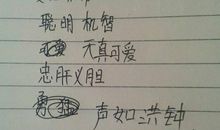 聪明机智
天真可爱
忠肝义胆
声如洪钟